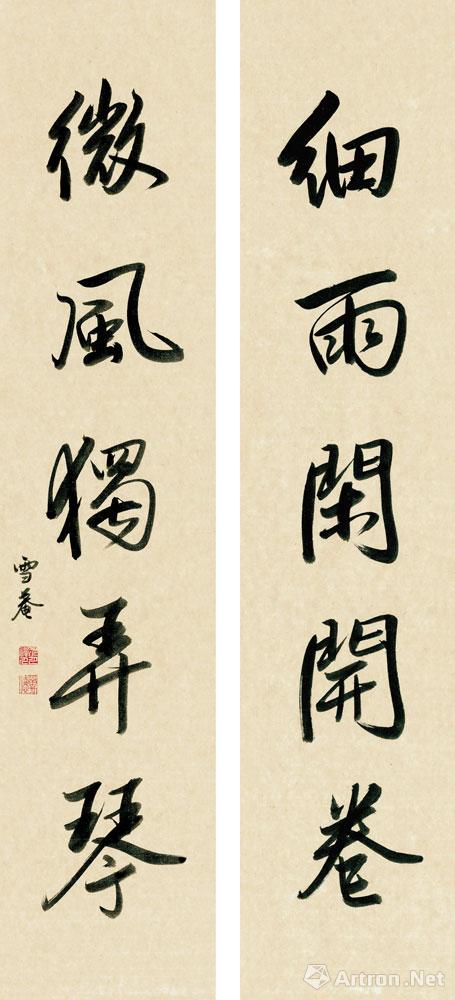 細雨閑開卷
微風獨弄琴
雪菴
Artron.Net